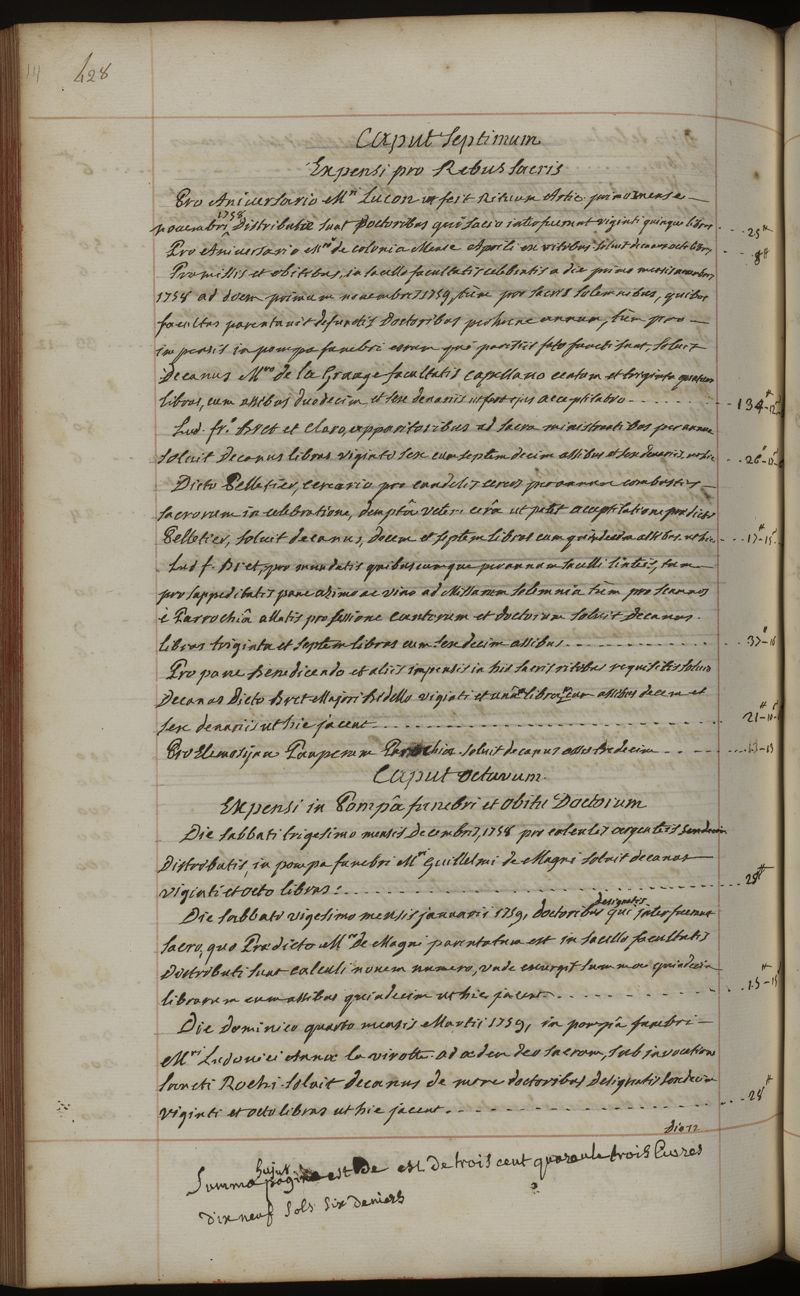 428
Caput Septimum
Expensi pro Rebus sacris
Pro Aniversario Mri Lucon ut feit Rituum Artic. primo mense
novembri 1758 Distributæ sunt Doctoribus qui sacro interfuerunt viginti quinque libræ 25#
Pro Aniversario Mri de colonia Mense Aprili ex ritibus soluit decanus octo libras 8#
Pro missis et obitibus, in sacello facultatis celebratis a die primo mensis novembris
1758 ad diem primum novembris 1759, tùm pro sacris solemnibus, quibus
facultas parentavit defunctis Doctoribus per hunc annum, tùm pro
impensis in pompa funebri eorum qui pariter fato functi sunt, soluit
Decanus Mro de la Grange facultatis capellano centum et triginta quatuor
libras, cum assibus duodecim et sex denariis ut fert ejus acceptilatio 134#-12s
Lud. fr. Bret et Claro, apparitoribus ad sacra ministrantibus per annum
soluit Decanus libras viginti sex cum septem decim assibus et sex denariis, ut hic 26#-17s
Dicto Pelletier, cerario pro candelis cereis per annum combustis
sacrorum in celebratione, demptâ veteri cerâ ut patet acceptilatione prædicti
Pelletier, soluit decanus, decem et septem libras cum quindecim assibus ut hic 17#-15s
Lud f. Bret, pro mundatis quibuscumque per annum sacelli linteis, tum
pro suppeditatis pane azimo ac vino ad Missarum solemnia tùm pro scannis
è Parrochiâ allatis pro sessione cantorum et doctorum soluit Decanus
libras triginta et septem libras cum sex decim assibus 37#-16
Pro pane Benedicendo et aliis impensis in his sacris ritibus requisitis soluit
Decanus Dicto Bret Majori Bidello viginti et unam libram cum assibus decem et
sex denariis ut hic jacent 21#-10s
Pro Elemosijna Pauperum Parrochiæ soluit decanus asses tredecim 13
Caput octavum
Expensi in Pompâ funebri et obitu Doctorum
Die sabbati trigesimo mensis Decembris, 1758 pro calculis argenteis sexdecim
Distributis, in pompa funebri Mri Guillelmi de Magni soluit decanus
viginti et octo libras: 28#
Die sabbato vigesimo mensis januarii 1759, doctoribus designatis qui interfuerunt
sacro, quo Prædicto Mro de Magni parentatum est in sacello facultatis
Distributi sunt calculi novem numero, unde exurgit summa quindecim
librarum cum assibus quindecim ut hic jacent 15#-15s
Die dominico quarto mensis Martis 1759, in pompâ funebri
Mri Ludovici Annæ la virotte ad ædem deo sacram, sub invocatione
sancti Rochi soluit decanus de more doctoribus designatis sexdecim
viginti et octo libras ut hic jacent 28#
Die 11
Summa hujus paginæ est de est de trois cent quarante trois Livres
dix neuf sols six deniers